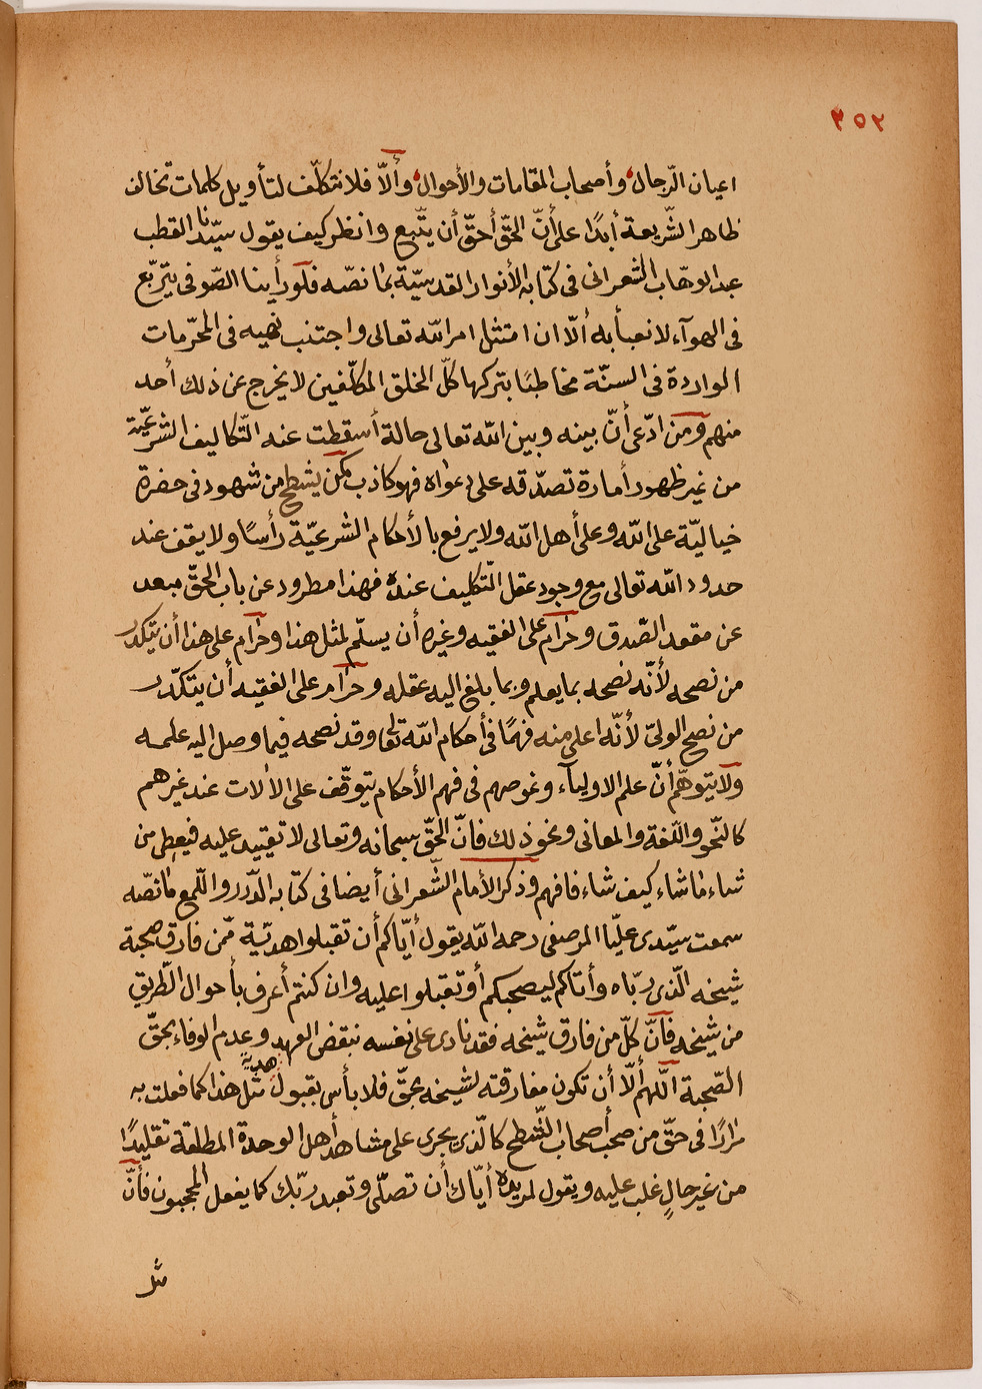 ٣٥٢
اعيان الرّجال وأصحاب المقامات والأحوال وألّا فلا نتكلّف لتأويل كلمات تخالف
ظاهر الشّريعة أبدًا على أنّ الحقّ أحقّ أن يتّبع وانظر كيف يقول سيّدنا القطب
عبد الوهّاب الشعرانى فى كتابه الأنوار القدسيّة بما نصّه فلو رأينا الصّوفى يتربّع
فى الهوآء لا نعبأ به ألّا ان امتثل امر الله تعالى واجتنب نهيه فى المحرّمات
الواردة فى السنّة مخاطبًا بتركها كلّ الخلق المكلّفين لا يخرج عن ذلك أحد
منهم ومن ادّعى أنّ بينه وبين الله تعالى حالة أسقطت عنه التّكاليف الشرعيّة
من غير ظهور أمارة تصدّقه على دعواه فهو كاذب كمن يشطح من شهود فى حضرة
خياليّة على الله وعلى أهل الله ولا يرفع بالأحكام الشرعيّة رأسًا ولا يقف عند
حدود الله تعالى مع وجود عقل التّكليف عنده فهذا مطرود عن باب الحقّ مبعد
عن مقعد الصّدق وحرام على الفقيه وغيره أن يسلّم لمثل هذا وحرام على هذا أن يتكدر
من نصحه لأنّه نصحه بما يعلم وبما بلغ اليه عقله وحرام على الفقيه أن يتكدّر
من نصح الولىّ لأنّه اعلى منه فهمًا فى أحكام الله تعالى وقد نصحه فيما وصل اليه علمه
ولا يتوهّم أنّ علم الاوليآء وغوصهم فى فهم الأحكام يتوقّف على الالات عند غيرهم
كالنّحو واللّغة والمعانى ونحو ذلك فانّ الحقّ سبحانه وتعالى لا تقييد عليه فيعطى من
شاء ماشاء كيف شاء فافهم وذكر الأمام الشّعرانى أيضا فى كتابه الدّرر واللّمع مانصّه
سمعت سيّدى عليّا المرصفى رحمه الله يقول أيّاكم أن تقبلوا هديّة ممّن فارق صحبة
شيخه الّذى ربّاه وأتاكم ليصحبكم أو تقبلوا عليه وان كنتم أعرف بأحوال الطّريق
من شيخه فانّ كلّ من فارق شيخه فقد نادى على نفسه بنقض العهد وعدم الوفاء بحقّ
الصّحبة اللّهم ألّا أن تكون مفارقته لشيخه بحقّ فلا بأس بقبول هديّة مثل هذا كما فعلت به
مرارًا فى حقّ من صحب أصحاب الشّطح كالّذى يجرى على مشاهد أهل الوحدة المطلقة تقليدًا
من غير حالٍ غلب عليه ويقول لمريده أيّاك أن تصلّى وتعبد ربّك كما يفعل المحجبون فأنّ
مثل